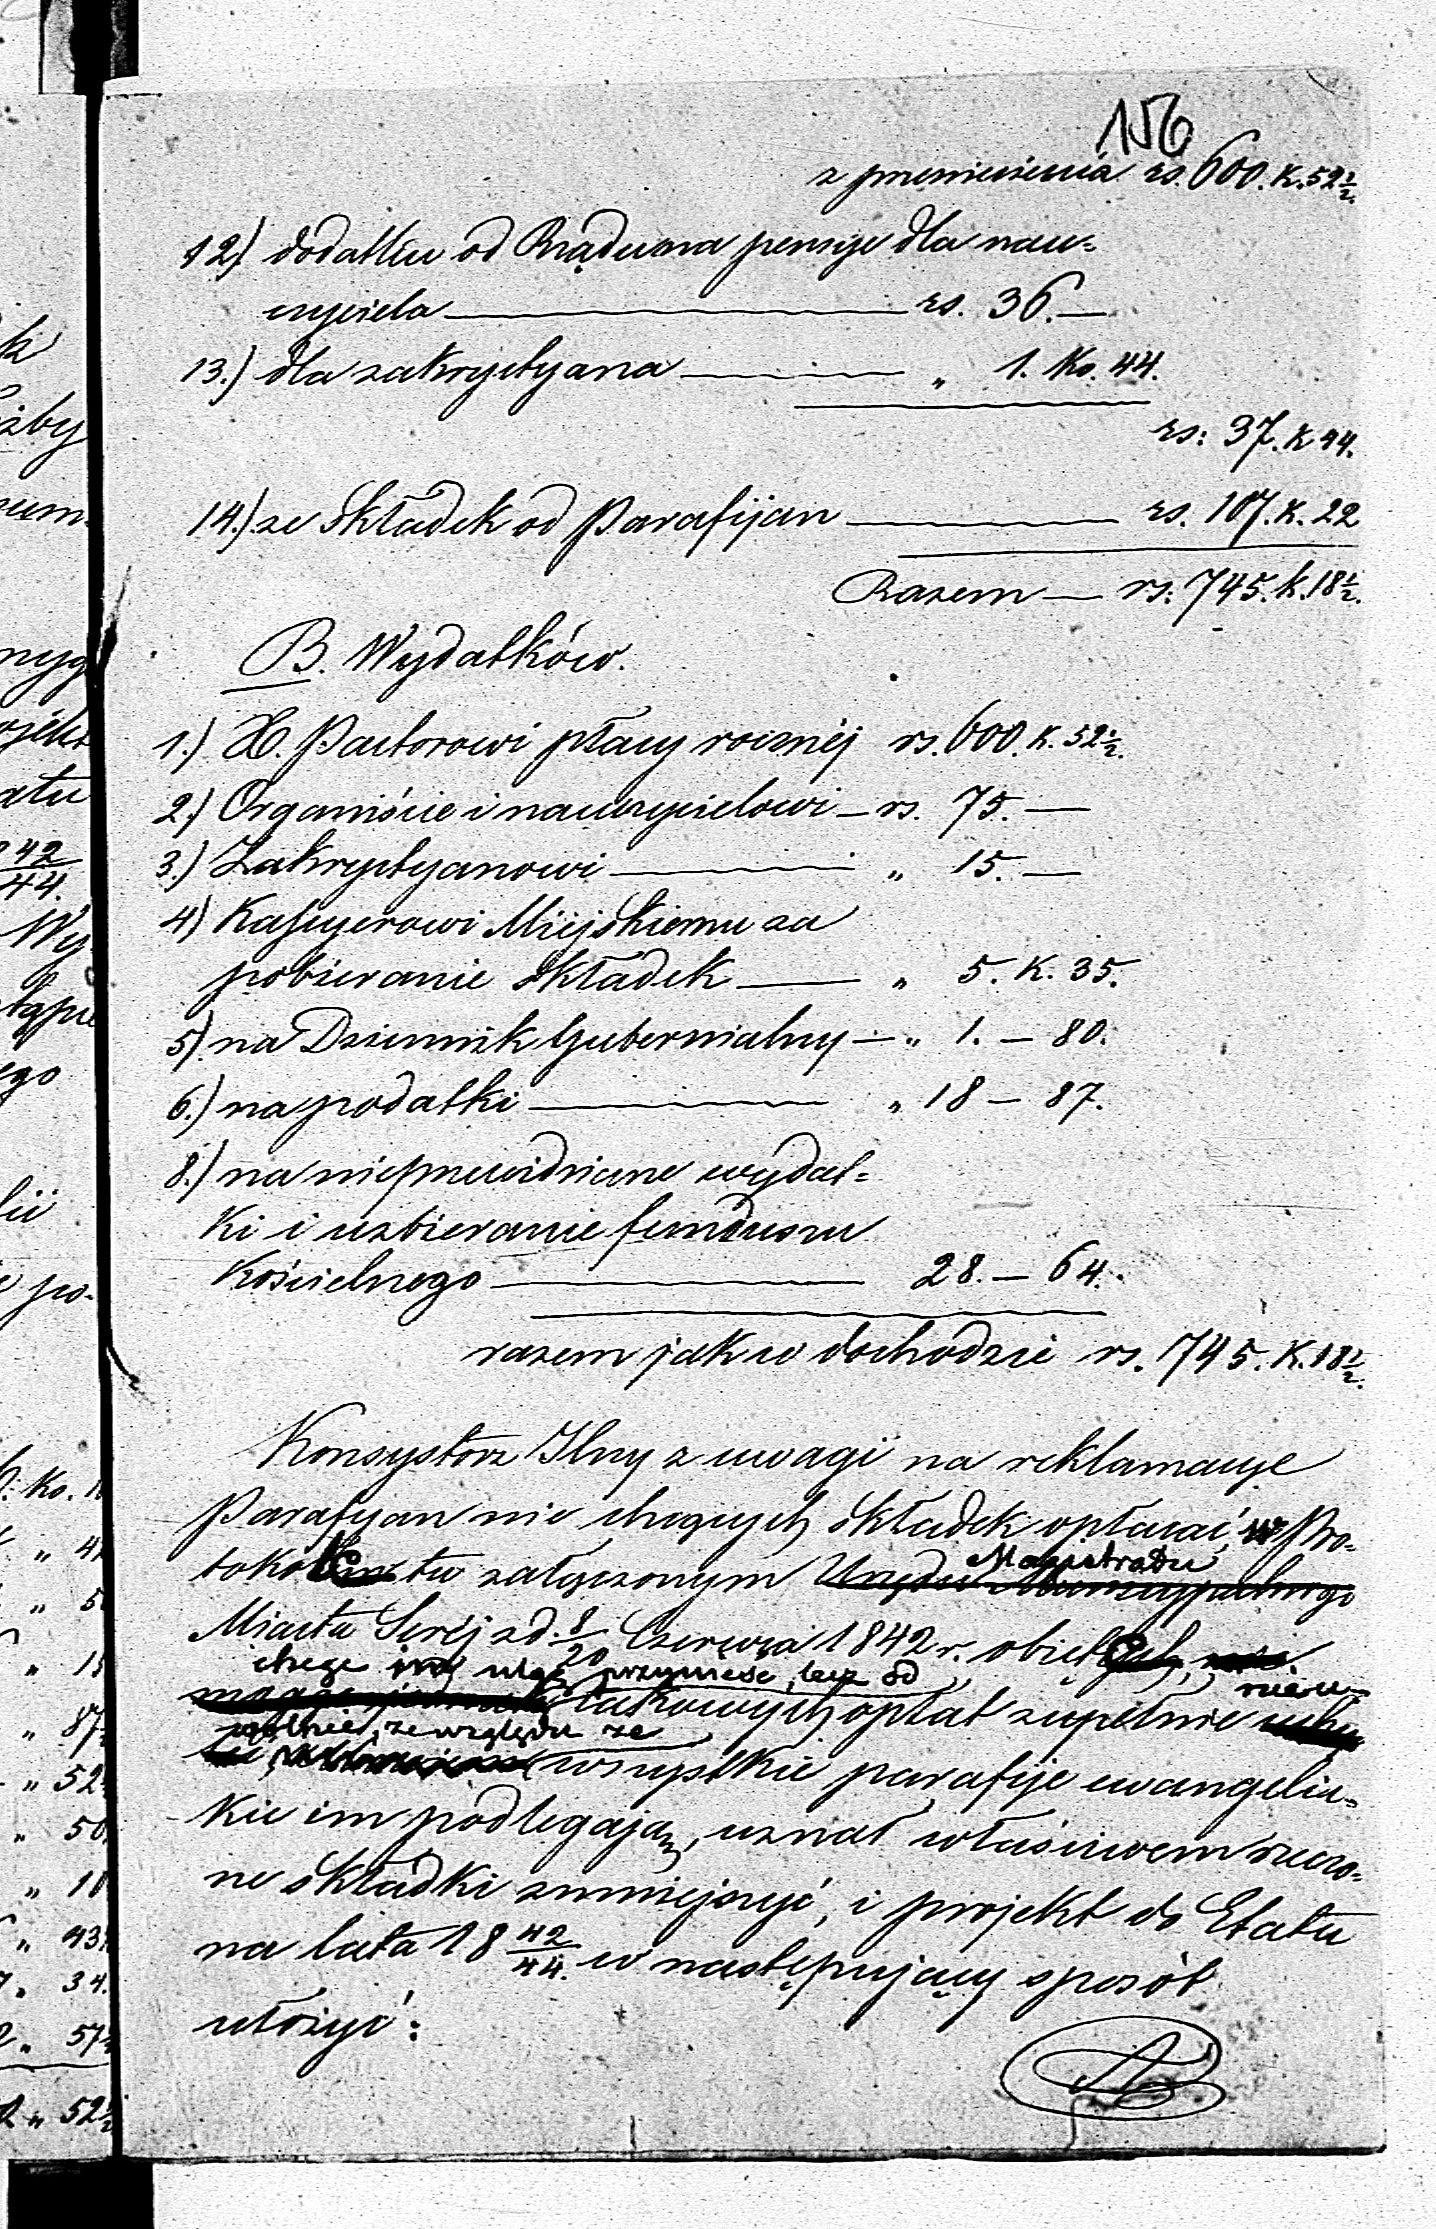 156
z przeniesienia rs. 600. K. 52½.
12.) dodatku od Rządu na pensye dla nau-
czyciela rs. 36.—
13.) dla zakrystyana „ 1. ko. 44.
rs: 37. k 44.
14.) ze składek od Parafijan rs. 107. k. 22
Razem — rs: 745. k. 18½.
B. Wydatków.
1.) X. Pastorowi płacy rocznéj rs. 600. K. 52½.
2.) Organiście i nauczycielowi — rs. 75. —
3.) Zakrystyanowi „ 15. —
4) Kassyerowi Miejskiemu za
pobieranie składek „ 5. K. 35.
5). na Dziennik Gubernialny — „ 1. — 80.
6.) na podatki „ 18 — 87.
8.) na nieprzewidziane wydat-
ki i uzbieranie funduszu
Kościelnego 28. — 64.
razem jak w dochodzie rs. 745. K. 18½.
Konsystorz Jlny z uwagi na reklamacye
Parafyan nie chcących składek opłacać, w Pro-
Magistratu
tokole tu załączonym Urzędu Municypalnego
Miasta Seréj z d. 8/20 Czerwca 1842 r. objętych,
chcąc im ulgę przynieść, lecz od nieu-
takowych opłat zupełnie
walniać, ze względu że
wszystkie parafije ewangelic-
kie im podlegają, uznał właściwem rzeczo-
ne składki zmniejszyć, i projekt do Etatu
na lata 18 42/44. w następujący sposób
ułożyć: